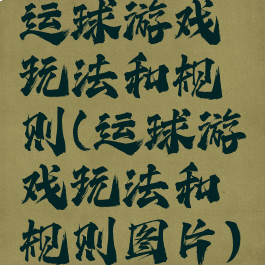 运球游戏
玩法和规
则(运球游
戏玩法和
规则图片)